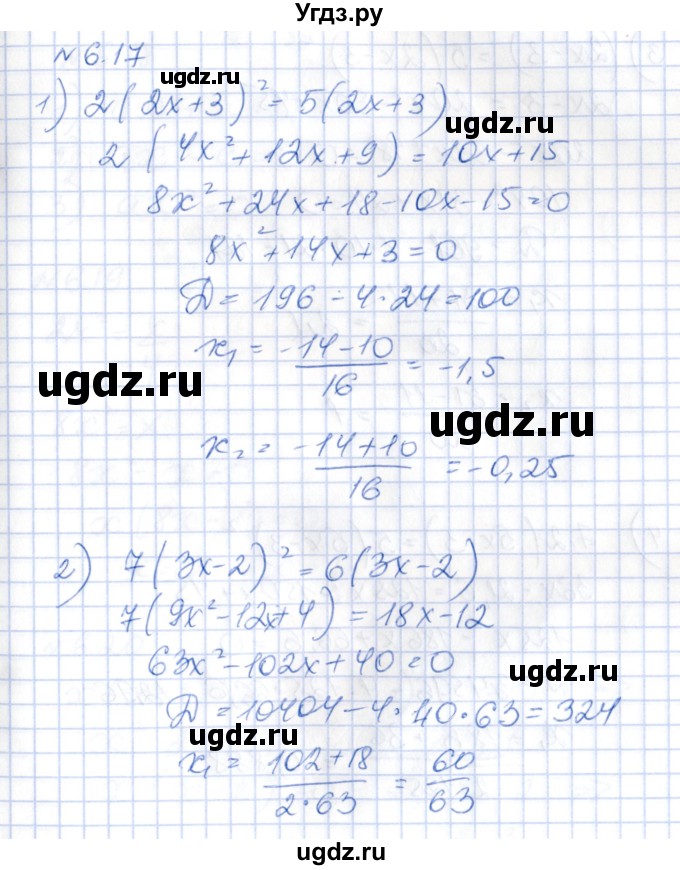 Угдз.ру
№ 6.17
ugdz.ru
1) 2(2x+3)² = 5(2x+3)
ugdz.ru
2(4x²+12x+9) = 10x+15
8x²+24x+18-10x-15=0
8x²+14x+3=0
D = 196 - 4·24 = 100
x₁ = (-14-10)/16 = -1,5
ugdz.ru
ugdz.ru
x₂ = (-14+10)/16 = -0,25
2) 7(3x-2)² = 6(3x-2)
7(9x²-12x+4) = 18x-12
63x²-102x+40=0
ugdz.ru
D = 10404-4·40·63=324
ugdz.ru
x₁ = (102+18)/(2·63) = 60/63
ugdz.ru